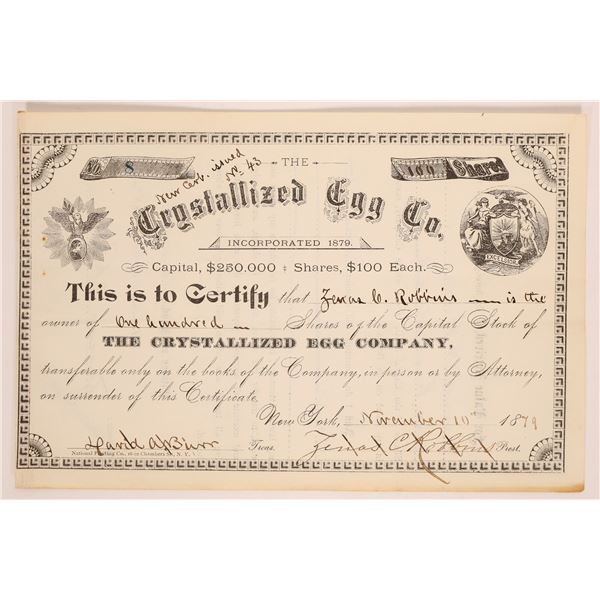 No. 8
New Cert. issued
No. 43
THE
100 Shares
Crystallized Egg Co.
INCORPORATED 1879.
EXCELSIOR
Capital, $250.000 : Shares, $100 Each.
This is to Certify that Zenas C. Robbins is the
owner of One hundred Shares of the Capital Stock of
THE CRYSTALLIZED EGG COMPANY,
transferable only on the books of the Company, in person or by Attorney,
on surrender of this Certificate.
New York, November 10th 1879
David A. Burr Treas. Zenas C. Robbins Prest.
National Printing Co., Chambers St., N. Y.